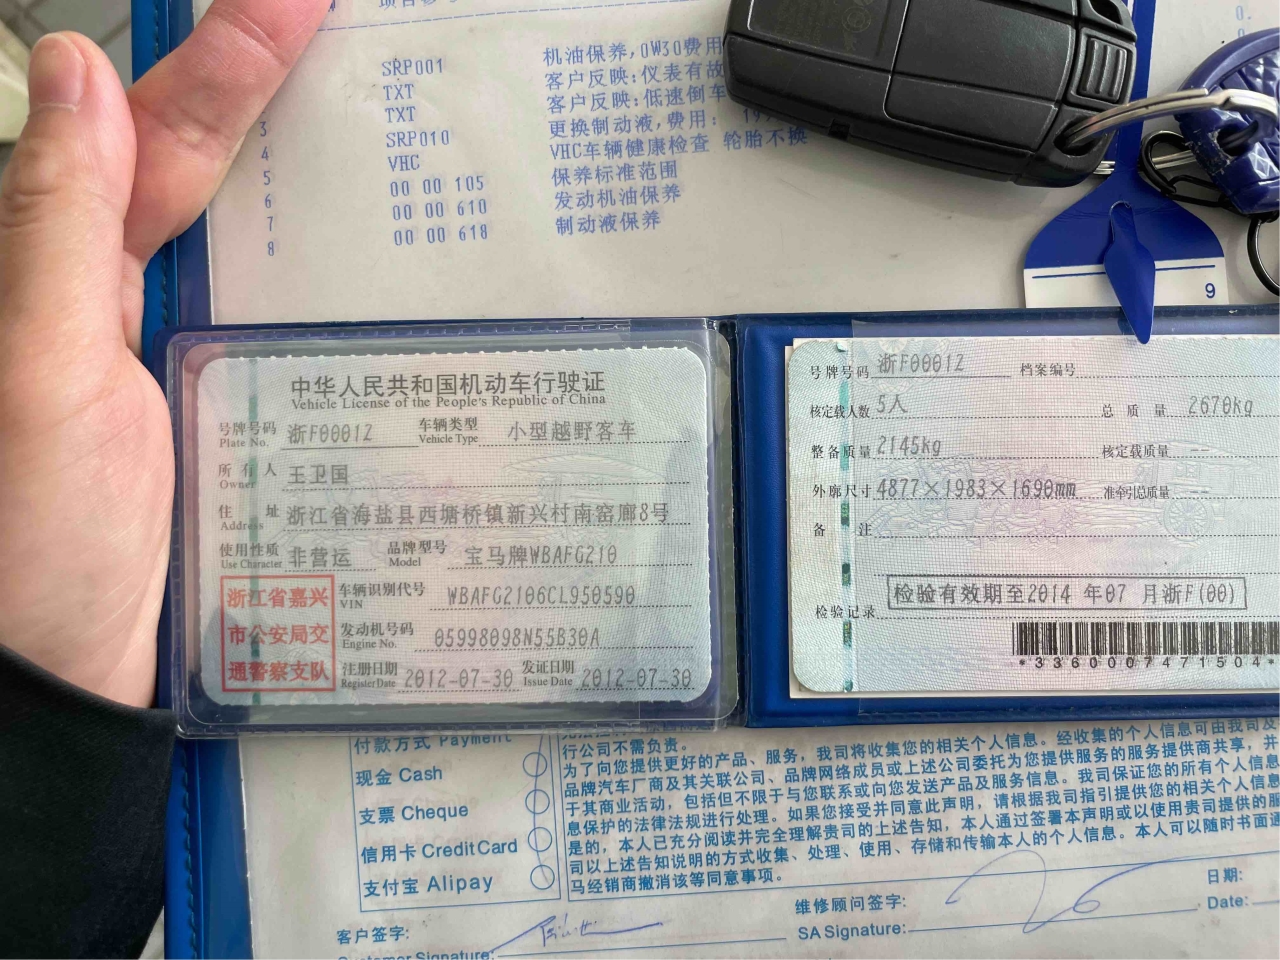 SRP001 机油保养,0W30费用
TXT 客户反映:仪表有故
TXT 客户反映:低速倒车
3 SRP010 更换制动液,费用: 19
4 VHC VHC车辆健康检查 轮胎不换
5 00 00 105 保养标准范围
6 00 00 610 发动机油保养
7 00 00 618 制动液保养
8
9
中华人民共和国机动车行驶证
Vehicle License of the People's Republic of China
号牌号码 浙F0001Z 车辆类型 小型越野客车
Plate No. Vehicle Type
所有人 王卫国
Owner
住址 浙江省海盐县西塘桥镇新兴村南窑廊8号
Address
使用性质 非营运 品牌型号 宝马牌WBAFG210
Use Character Model
浙江省嘉兴
市公安局交
通警察支队
车辆识别代号 WBAFG2106CL950590
VIN
发动机号码 05998098N55B30A
Engine No.
注册日期 2012-07-30 发证日期 2012-07-30
Register Date Issue Date
号牌号码 浙F0001Z 档案编号
核定载人数 5人 总质量 2670kg
整备质量 2145kg 核定载质量 --
外廓尺寸 4877×1983×1690mm 准牵引总质量 --
备注
检验记录 检验有效期至2014 年07 月浙F(00)
*3360007471504*
付款方式 Payment
现金 Cash
支票 Cheque
信用卡 CreditCard
支付宝 Alipay
行公司不需负责。
为了向您提供更好的产品、服务，我司将收集您的相关个人信息。经收集的个人信息可由我司及
品牌汽车厂商及其关联公司、品牌网络成员或上述公司委托为您提供服务的服务提供商共享，并
于其商业活动，包括但不限于与您联系或向您发送产品及服务信息。我司保证您的所有个人信息
息保护的法律法规进行处理。如果您接受并同意此声明，请根据我司指引提供您的相关个人信息
是的，本人已充分阅读并完全理解贵司的上述告知，本人通过签署本声明或以使用贵司提供的服
司以上述告知说明的方式收集、处理、使用、存储和传输本人的个人信息。本人可以随时书面通
马经销商撤消该等同意事项。
客户签字:
Customer Signature:
维修顾问签字:
SA Signature:
日期:
Date: